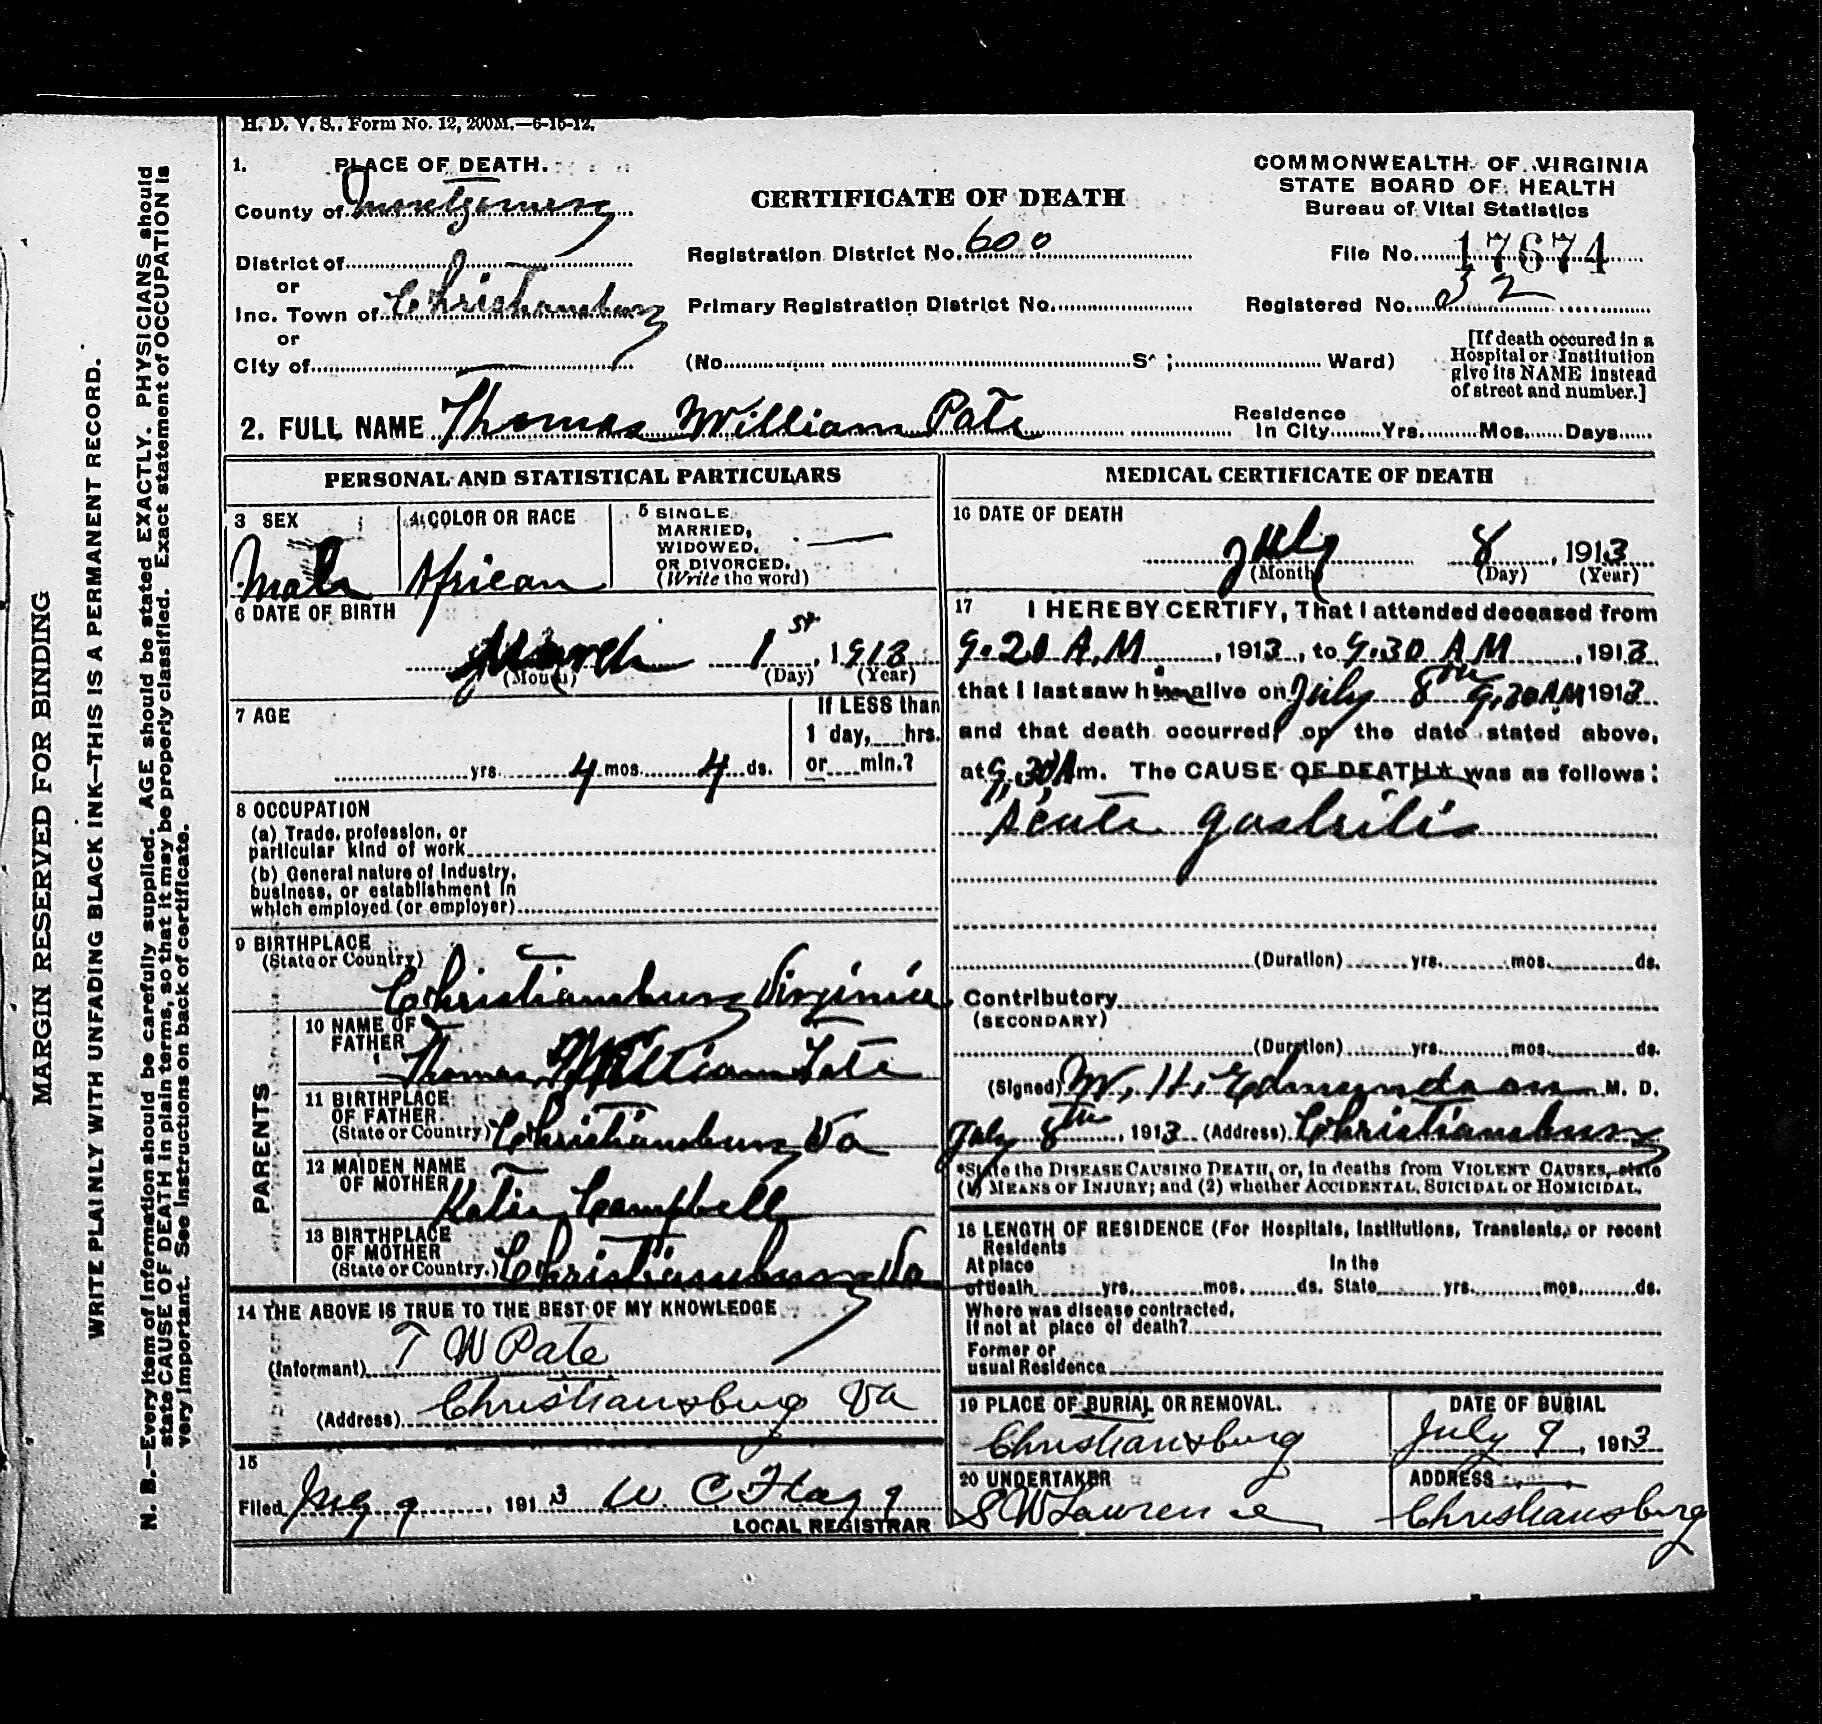 H. D. V. S.. Form No. 12, 200M.—6-15-12.
1. PLACE OF DEATH.
County of Montgomery
District of
or
Inc. Town of Christiansburg
or
City of
CERTIFICATE OF DEATH
Registration District No. 600
Primary Registration District No.
(No. St ; Ward)
COMMONWEALTH OF VIRGINIA
STATE BOARD OF HEALTH
Bureau of Vital Statistics
File No. 17674
Registered No. 32
[If death occured in a
Hospital or Institution
give its NAME instead
of street and number.]
2. FULL NAME Thomas William Pate
Residence
In City Yrs. Mos. Days
PERSONAL AND STATISTICAL PARTICULARS
3 SEX
Male
4 COLOR OR RACE
African
5 SINGLE
MARRIED,
WIDOWED,
OR DIVORCED.
(Write the word)
6 DATE OF BIRTH
March 1st, 1913
(Month) (Day) (Year)
7 AGE
yrs. 4 mos. 4 ds.
If LESS than
1 day, hrs.
or min.?
8 OCCUPATION
(a) Trade, profession, or
particular kind of work
(b) General nature of Industry,
business, or establishment in
which employed (or employer)
9 BIRTHPLACE
(State or Country)
Christiansburg Virginia
PARENTS
10 NAME OF
FATHER
Thomas William Tate
11 BIRTHPLACE
OF FATHER
(State or Country) Christiansburg Va
12 MAIDEN NAME
OF MOTHER
Katie Campbell
13 BIRTHPLACE
OF MOTHER
(State or Country.) Christiansburg Va
14 THE ABOVE IS TRUE TO THE BEST OF MY KNOWLEDGE
(Informant) T W Pate
(Address) Christiansburg Va
15
Filed July 9, 1913 W C Flagg
LOCAL REGISTRAR
MEDICAL CERTIFICATE OF DEATH
16 DATE OF DEATH
July 8, 1913
(Month) (Day) (Year)
17 I HEREBY CERTIFY, That I attended deceased from
9.20 A.M, 1913, to 9.30 A M, 1913
that I last saw him alive on July 8th 9.30 AM 1913
and that death occurred, on the date stated above,
at 9.30 A m. The CAUSE OF DEATH* was as follows:
Acute gastritis
(Duration) yrs. mos. ds.
Contributory
(SECONDARY)
(Duration) yrs. mos. ds.
(Signed) W. H. Edmundson M. D.
July 8th, 1913 (Address) Christiansburg
*State the DISEASE CAUSING DEATH, or, in deaths from VIOLENT CAUSES, state
(1) MEANS OF INJURY; and (2) whether ACCIDENTAL, SUICIDAL or HOMICIDAL.
18 LENGTH OF RESIDENCE (For Hospitals, Institutions, Transients, or recent
Residents
At place In the
of death yrs. mos. ds. State yrs. mos. ds.
Where was disease contracted,
If not at place of death?
Former or
usual Residence
19 PLACE OF BURIAL OR REMOVAL.
Christiansburg
DATE OF BURIAL
July 9, 1913
20 UNDERTAKER
S W Lawrence
ADDRESS
Christiansburg
MARGIN RESERVED FOR BINDING
WRITE PLAINLY WITH UNFADING BLACK INK—THIS IS A PERMANENT RECORD.
N. B.—Every item of information should be carefully supplied. AGE should be stated EXACTLY. PHYSICIANS should
state CAUSE OF DEATH in plain terms, so that it may be properly classified. Exact statement of OCCUPATION is
very important. See instructions on back of certificate.